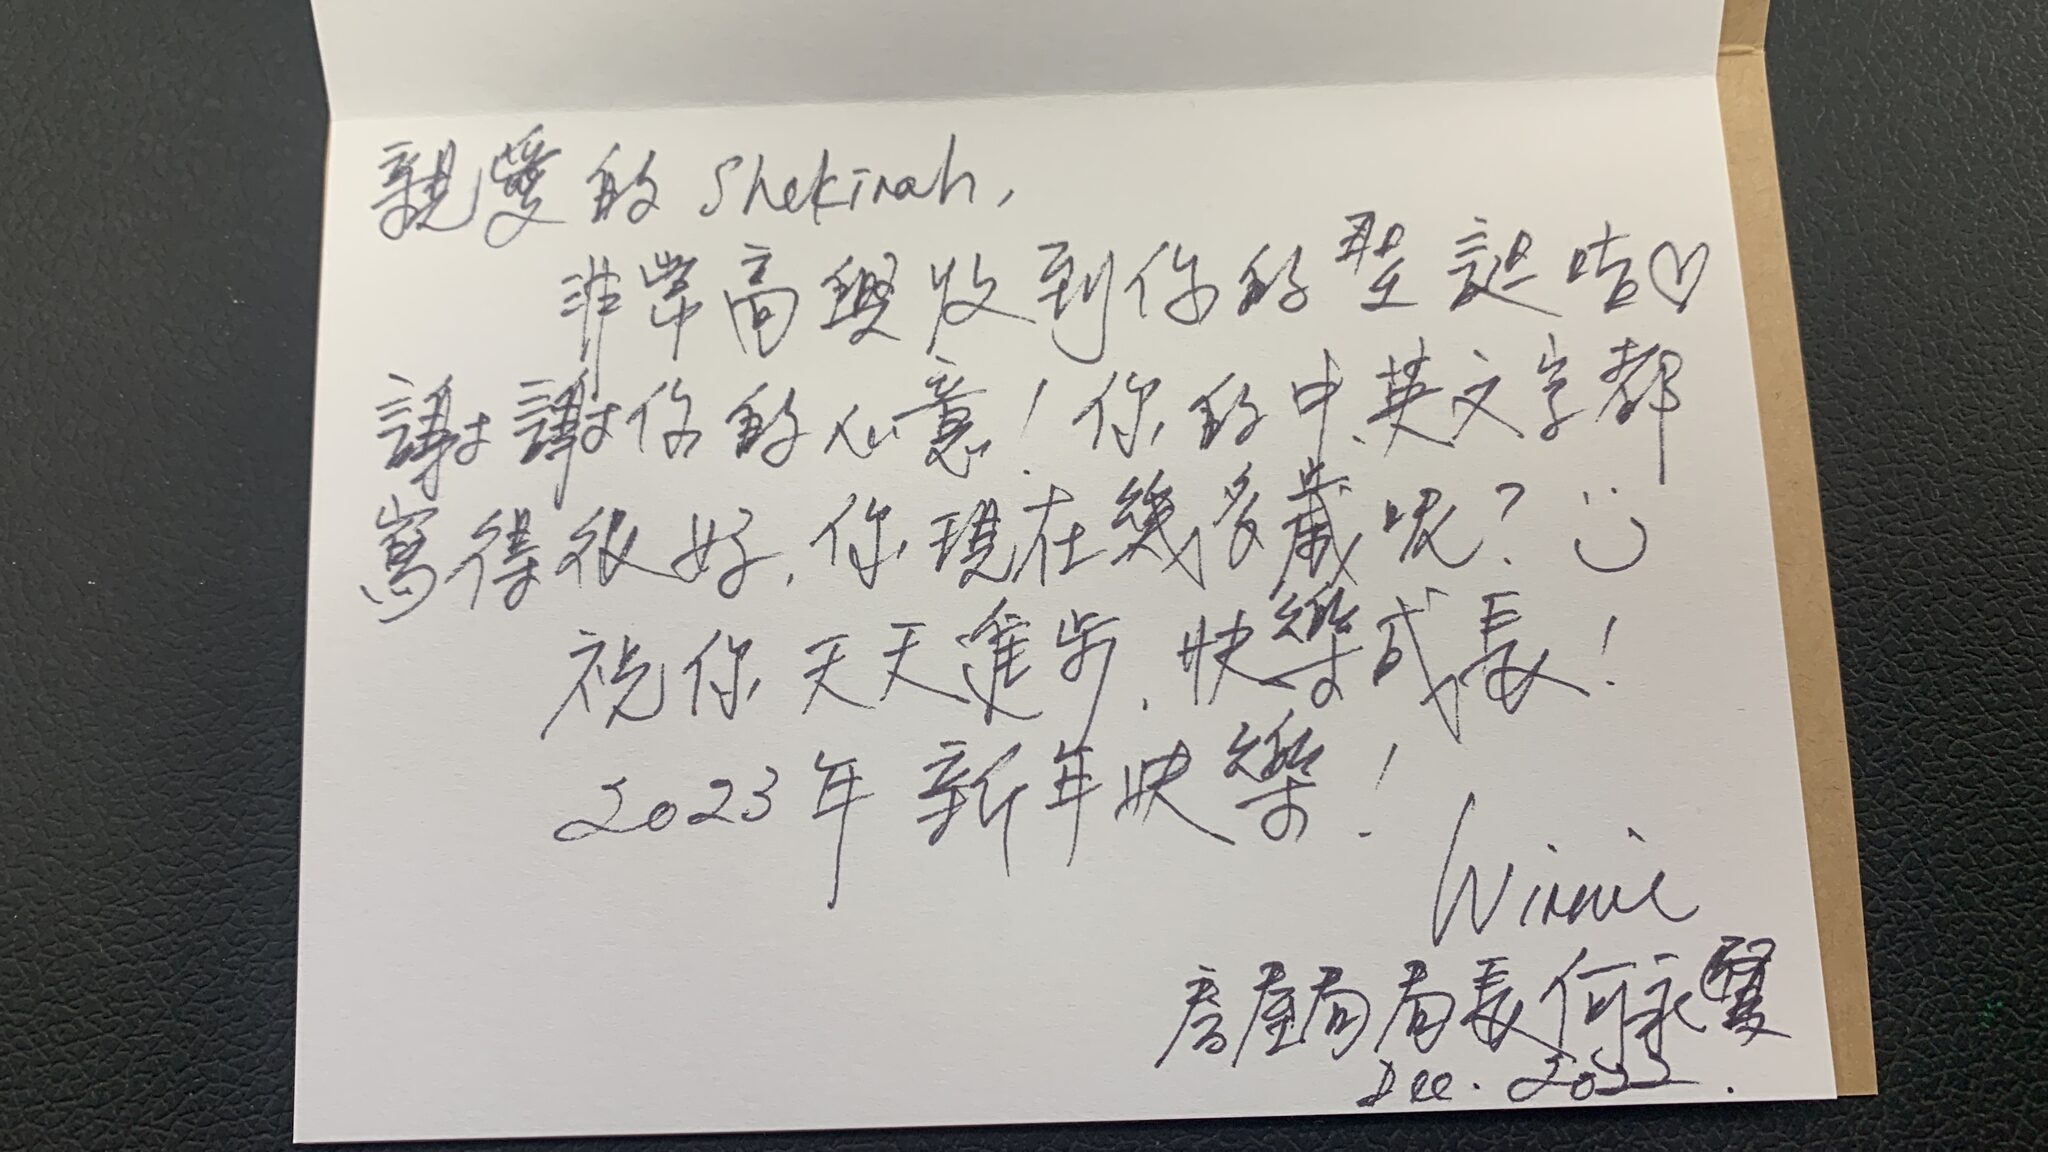 親愛的 Shekinah,
非常高興收到你的聖誕咭♡
謝謝你的心意！你的中、英文字都
寫得很好，你現在幾多歲呢？
祝你天天進步，快樂成長！
2023年新年快樂！
Winnie
房屋局局長何永賢
Dec. 2022.